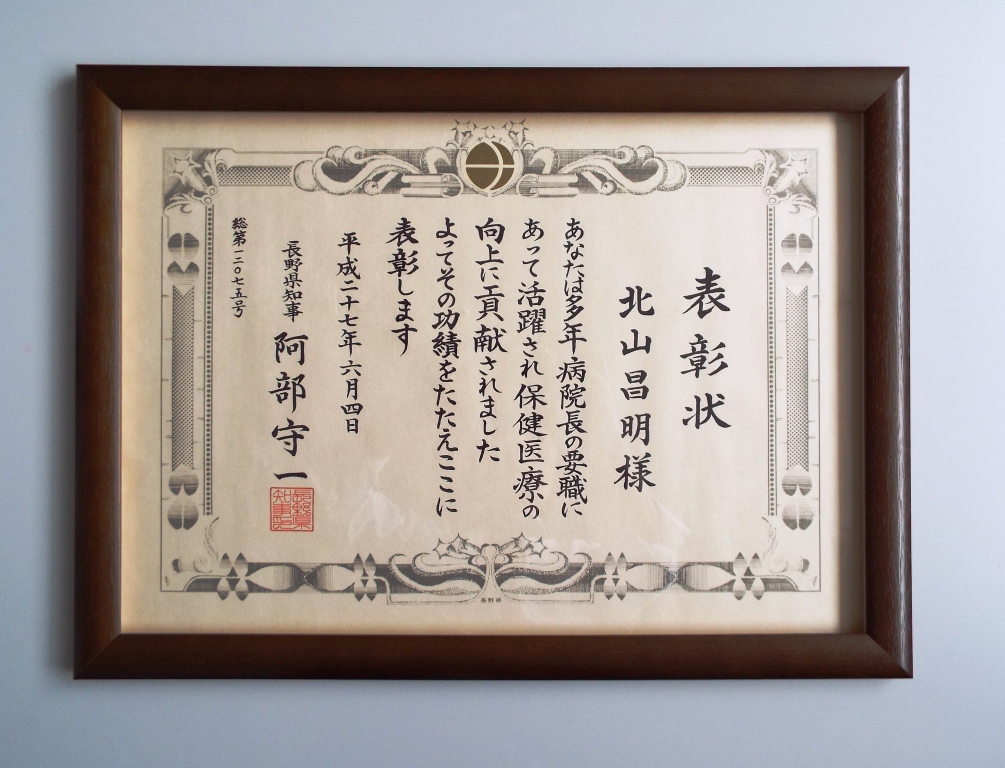 表彰状
北山昌明様
あなたは多年病院長の要職に
あって活躍され保健医療の
向上に貢献されました
よってその功績をたたえここに
表彰します
平成二十七年六月四日
長野県知事 阿部守一
長野県知事印
総第一二〇七五号
長野県